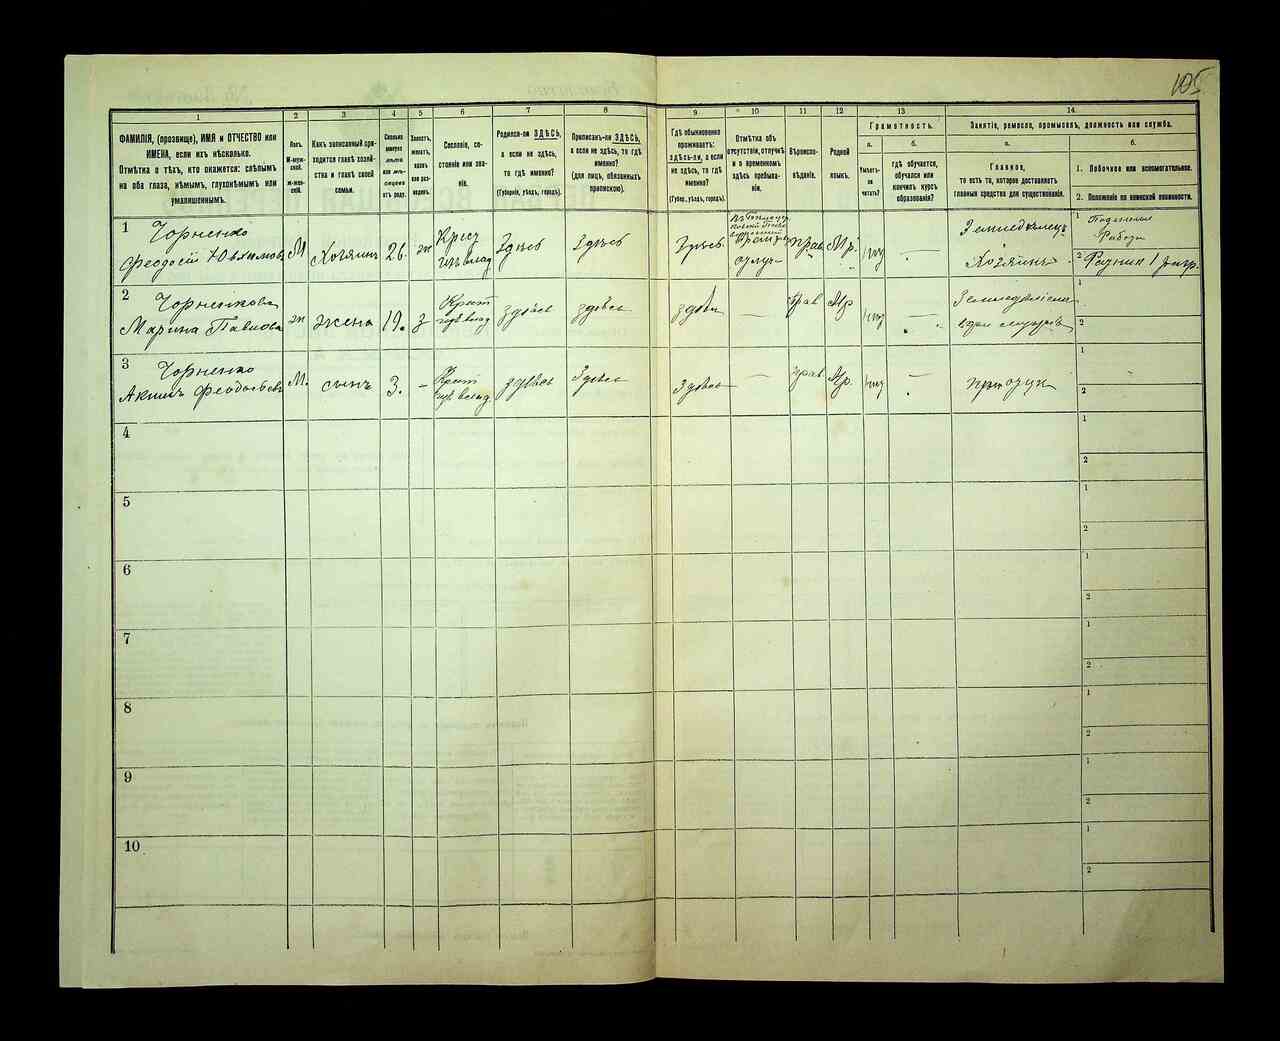 105
1
2
3
4
5
6
7
8
9
10
11
12
13
14.
ФАМИЛІЯ, (прозвище), ИМЯ и ОТЧЕСТВО или
ИМЕНА, если ихъ нѣсколько.
Отмѣтка о тѣхъ, кто окажется: слѣпымъ
на оба глаза, нѣмымъ, глухонѣмымъ или
умалишеннымъ.
Полъ.
М-мужской.
ж-женскій.
Какъ записанный приходится
главѣ хозяйства
и главѣ своей
семьи.
Сколько
минуло
лѣтъ
или мѣсяцевъ
отъ роду.
Холостъ,
женатъ,
вдовъ
или разведенъ.
Сословіе, состояніе
или званіе.
Родился-ли ЗДѢСЬ,
а если не здѣсь,
то гдѣ именно?
(Губернія, уѣздъ, городъ).
Приписанъ-ли ЗДѢСЬ,
а если не здѣсь, то гдѣ
именно?
(для лицъ, обязанныхъ
припискою).
Гдѣ обыкновенно
проживаетъ:
здѣсь-ли, а если
не здѣсь, то гдѣ
именно?
(Губер., уѣздъ, городъ).
Отмѣтка объ
отсутствіи, отлучкѣ
и о временномъ
здѣсь пребываніи.
Вѣроисповѣданіе.
Родной
языкъ.
Грамотность.
а.
Умѣетъ-ли
читать?
б.
гдѣ обучается,
обучался или
кончилъ курсъ
образованія?
Занятіе, ремесло, промыселъ, должность или служба.
а.
Главное,
то есть то, которое доставляетъ
главныя средства для существованія.
б.
1. Побочное или вспомогательное.
2. Положеніе по воинской повинности.
1 Чорненко
Феодосій Ювхимовъ
М Хозяинъ 26. ж Крест
изъ влад Здѣсь Здѣсь Здѣсь Прав Мр. нѣт —
Земледѣлецъ
Хозяинъ
1 Поденные
Работы
2 Ратник 1 разр.
2 Чорненкова
Марина Павлова
ж жена 19. з Крест
изъ влад здѣсь здѣсь здѣсь — прав Мр нѣт —
1
2
3 Чорненко
Акимъ Феодосьевъ
М. сынъ 3. — Крест
изъ влад. здѣсь Здѣсь Здѣсь — прав. Мр. нѣт —
1
2
4
1
2
5
1
2
6
1
2
7
1
2
8
1
2
9
1
2
10
1
2